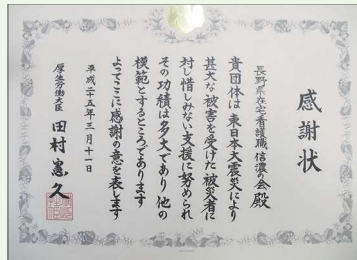 感謝状
長野県在宅看護職 信濃の会 殿
貴団体は東日本大震災により
甚大な被害を受けた被災者に
対し惜しみない支援に努められ
その功績は多大であり他の
模範とするところであります
よってここに感謝の意を表します
平成二十五年三月十一日
厚生労働大臣 田村憲久